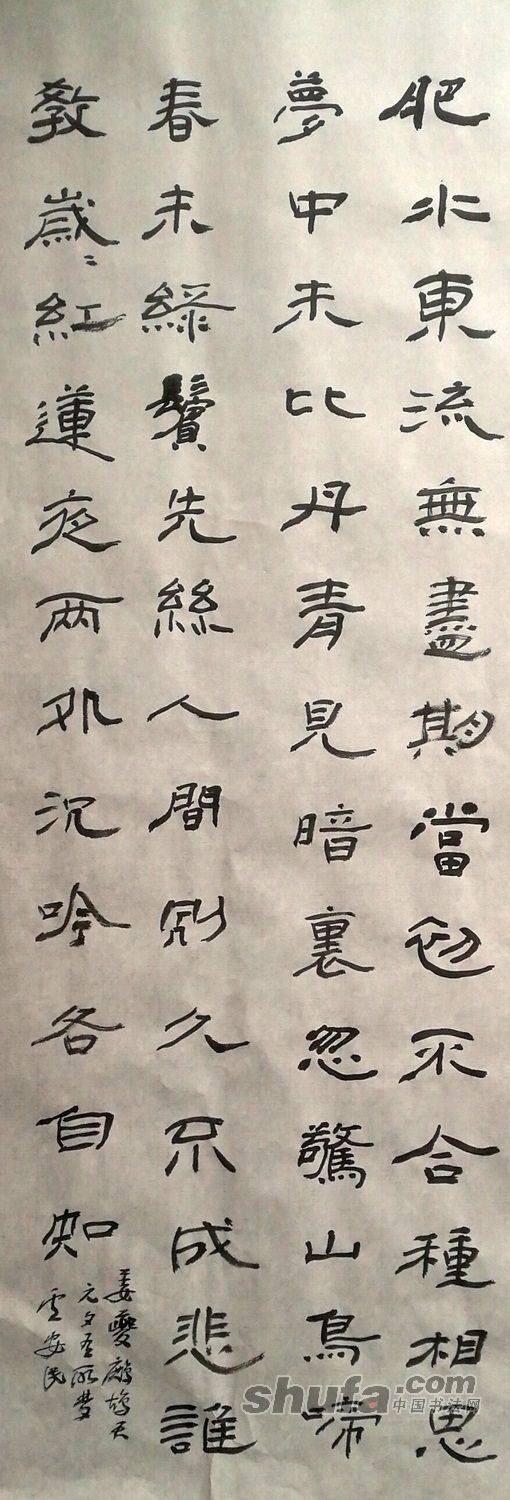 肥水東流無盡期當初不合種相思
夢中未比丹青見暗裏忽驚山鳥啼
春未綠鬢先絲人間別久不成悲誰
教歲〻紅蓮夜两処沉吟各自知
姜夔鷓鴣天
元夕有所夢
安民
shufa.com
中国书法网